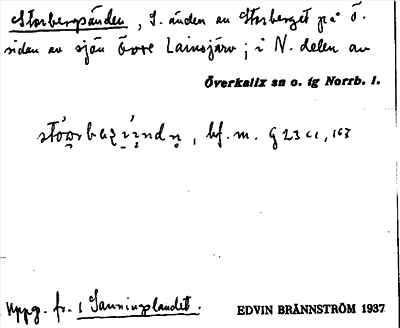 Storbergsänden, S. änden av Storberget på ö.
sidan av sjön Övre Lainsjärv; i N. delen av
Överkalix sn o. tg Norrb. l.
bf. m. G 23 c1, 163
Uppg. fr. 1 Sanningslandet.
EDVIN BRÄNNSTRÖM 1937.